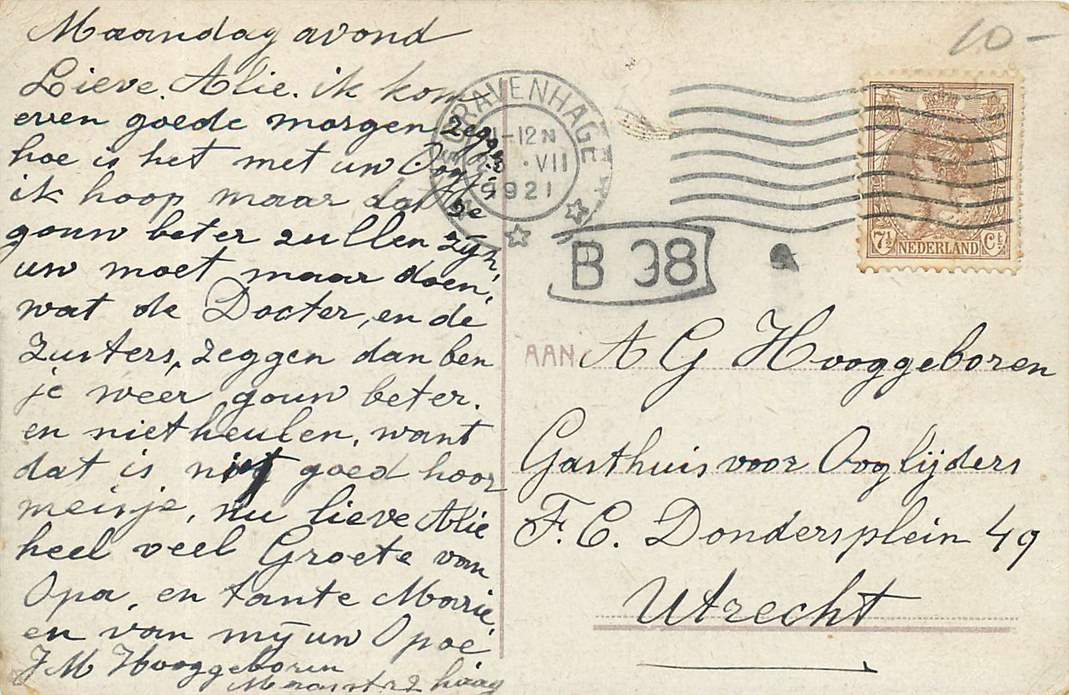 Maandag avond
Lieve Alie. ik kom
even goede morgen zeggen
hoe is het met uw Oog
ik hoop maar dat ze
gouw beter zullen zijn,
uw moet maar doen,
wat de Docter, en de
Zusters, zeggen dan ben
je weer gouw beter.
en niet heulen, want
dat is niet goed hoor
meisje, nu lieve Alie
heel veel Groete van
Opa, en tante Marie,
en van mijn Opoe
J M Hooggeboren
2 haag
10-
'S GRAVENHAGE
-12 N
VII
1921
B 98
7½ NEDERLAND Ct
AAN A G Hooggeboren
Gasthuis voor Ooglijders
F. C. Dondersplein 49
Utrecht